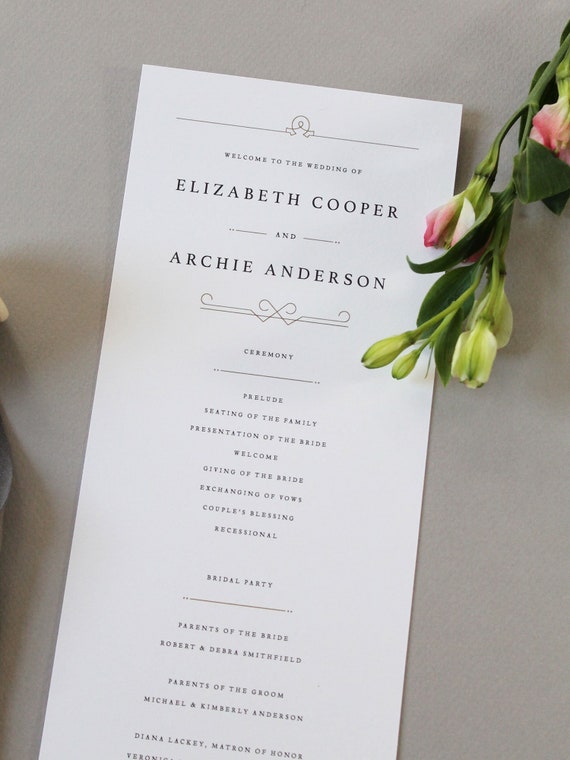 WELCOME TO THE WEDDING OF
ELIZABETH COOPER
AND
ARCHIE ANDERSON
CEREMONY
PRELUDE
SEATING OF THE FAMILY
PRESENTATION OF THE BRIDE
WELCOME
GIVING OF THE BRIDE
EXCHANGING OF VOWS
COUPLE'S BLESSING
RECESSIONAL
BRIDAL PARTY
PARENTS OF THE BRIDE
ROBERT & DEBRA SMITHFIELD
PARENTS OF THE GROOM
MICHAEL & KIMBERLY ANDERSON
DIANA LACKEY, MATRON OF HONOR